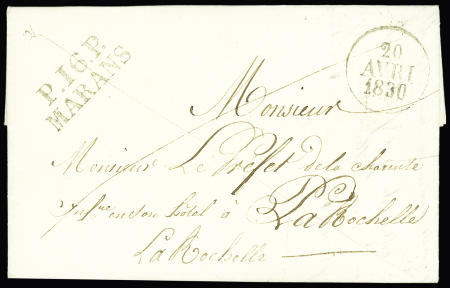 P.16.P.
MARANS
20
AVRI
1830
Monsieur
Monsieur Le Préfet de la charente
Inf.re en son hôtel à La Rochelle
La Rochelle